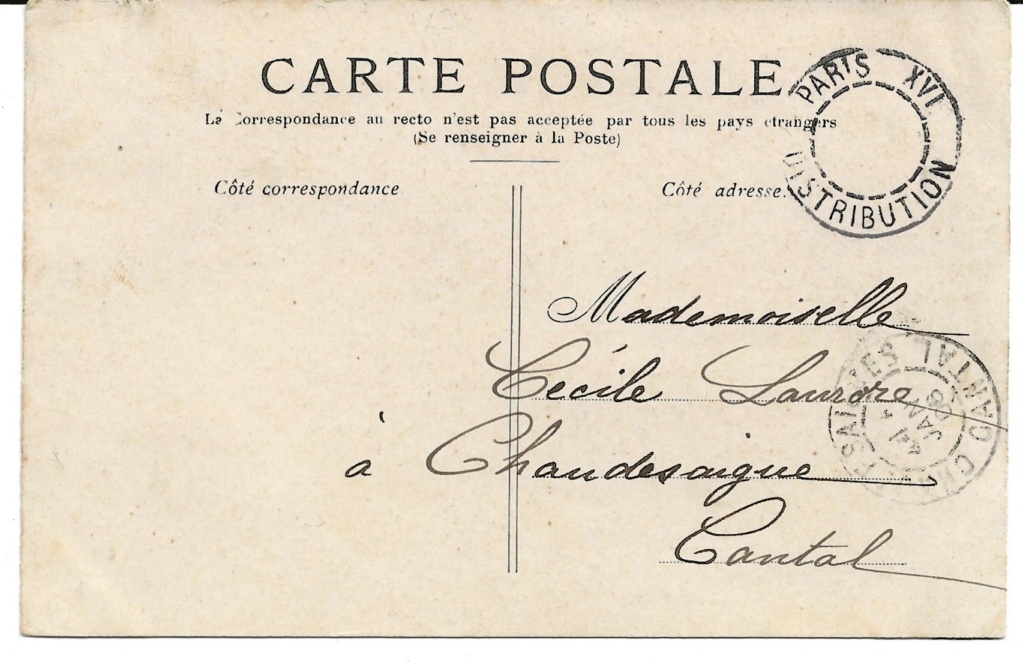 CARTE POSTALE
La Correspondance au recto n'est pas acceptée par tous les pays étrangers
(Se renseigner à la Poste)
Côté correspondance
Côté adresse.
PARIS XVI
DISTRIBUTION
Mademoiselle
Cécile
à Chaudesaigue
Cantal
CANTAL
JANV
06